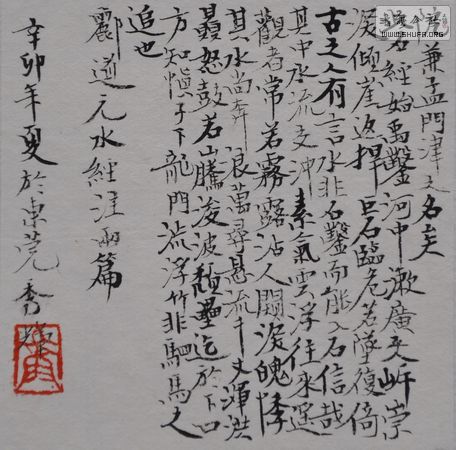 兼孟門津之名矣
石經始禹鑿河中漱廣夾岸崇
深傾崖返捍巨石臨危若墜復倚
古之人有言水非石鑿而能入石信哉
其中水流交冲素氣雲浮往來遥
觀者常若霧露沾人闚深魄悸
其水尚奔浪萬尋懸流千丈渾洪
贔怒鼓若山騰浚波頹疊迄於下口
方知慎子下龍門流浮竹非駟馬之
追也
酈道元水經注兩篇
辛卯年夏於東莞秀
WWW.SHUFA.ORG